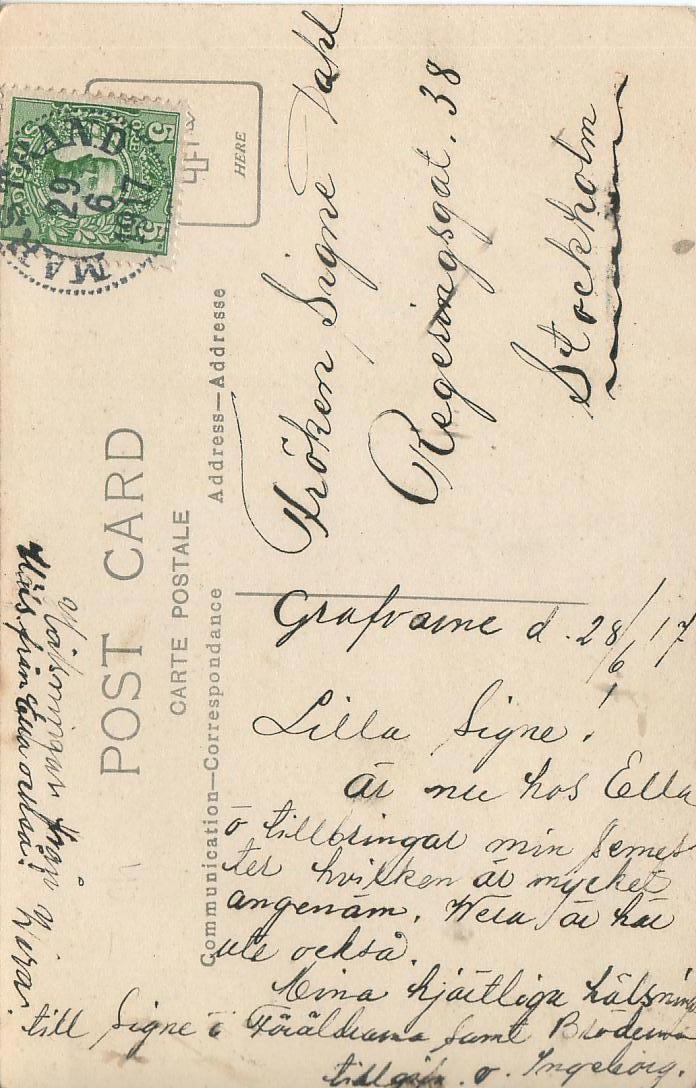 POST CARD
CARTE POSTALE
Communication—Correspondance
Address—Addresse
HERE
SVERIGE
5 ÖRE 5
MARSTRAND
29
6
1917
Fröken Signe Dahl
Regeringsgat. 38
Stockholm
Grafvarne d. 28/6 17
Lilla Signe!
Är nu hos Ella
o tillbringar min semes
ter hvilken är mycket
angenäm. Wera är här
ute också.
Mina hjärtliga hälsningar
till Signe o Föräldrarna samt Bröderna
tillgifn. v. Ingeborg.
Hälsningar från
Häls från Ella också!